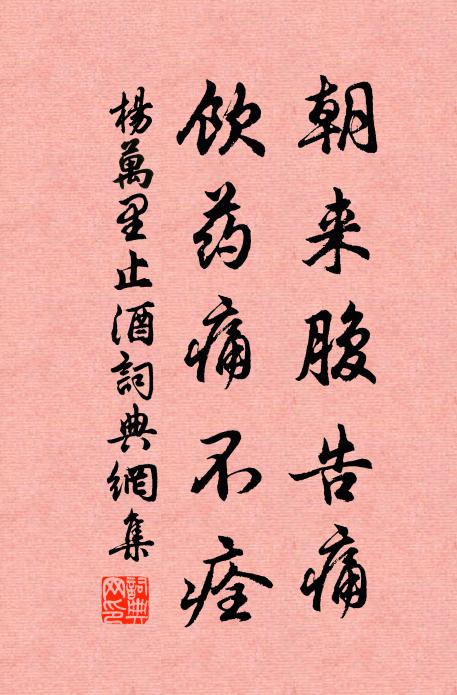 朝来腹告痛
饮药痛不痊
楊萬里止酒詞典網集
詞典网印